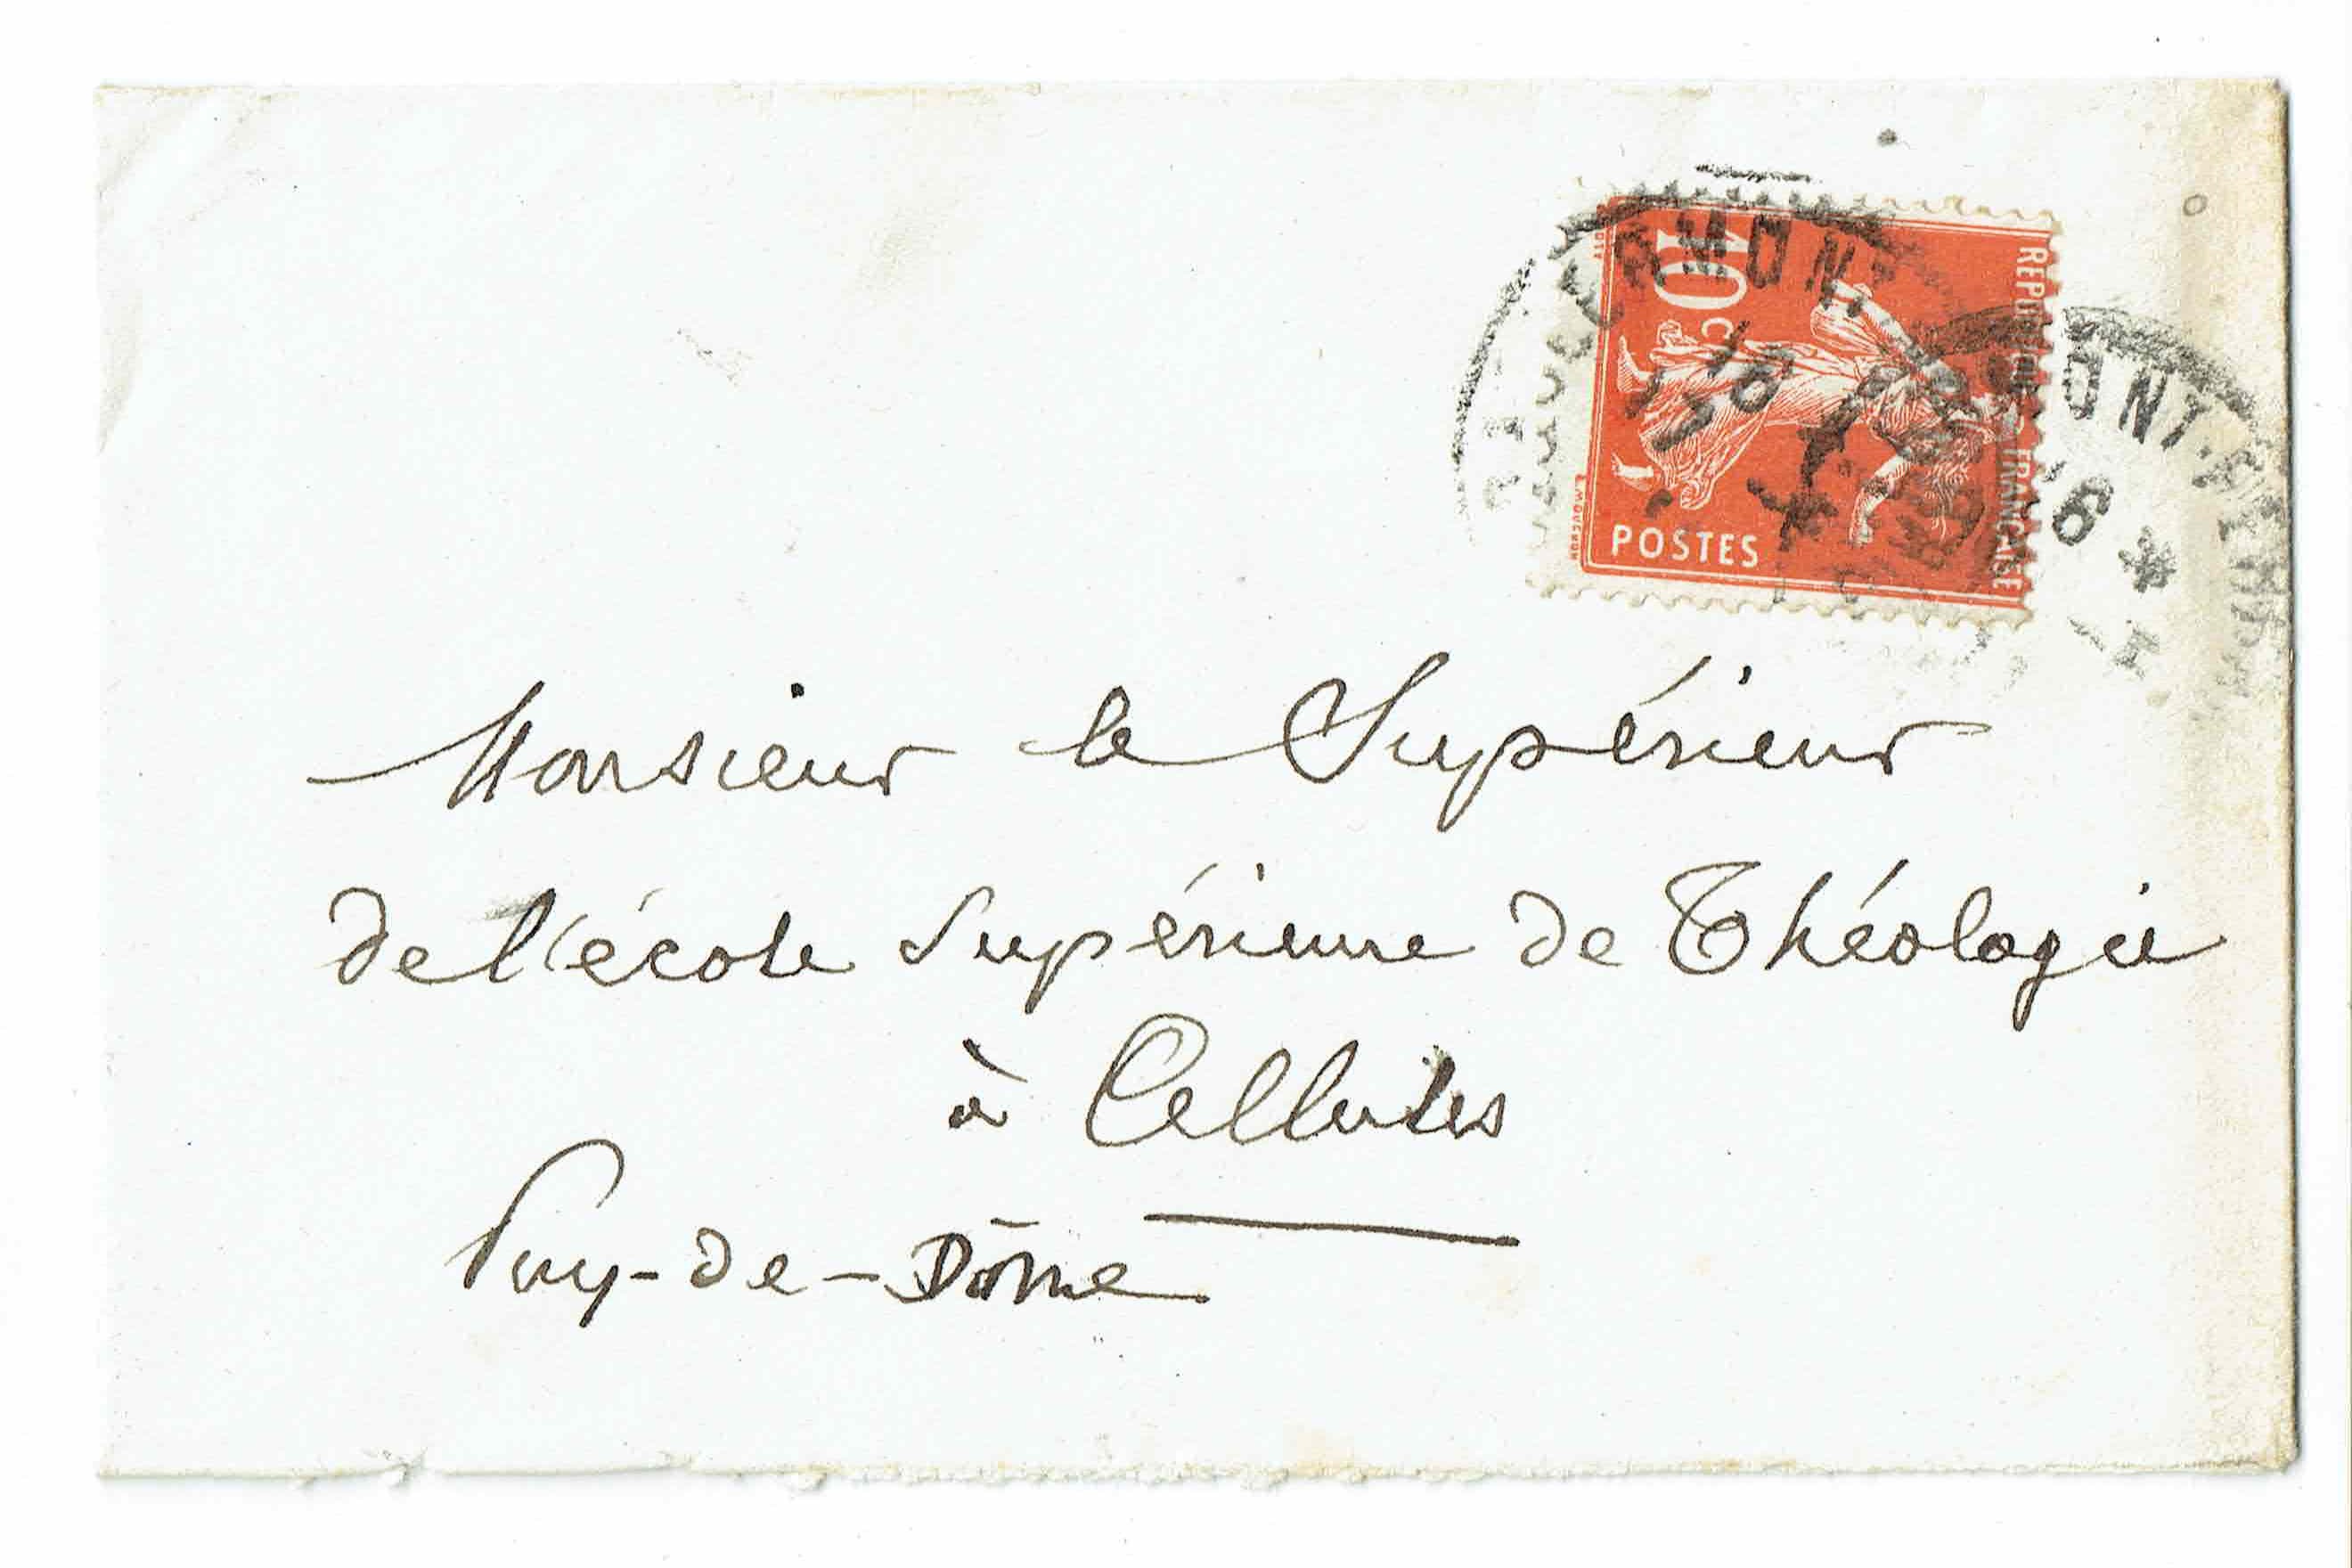 10 c
REPUBLIQUE FRANÇAISE
POSTES
Monsieur le Supérieur
de l'école supérieure de Théologie
à Cellules
Puy-de-Dôme